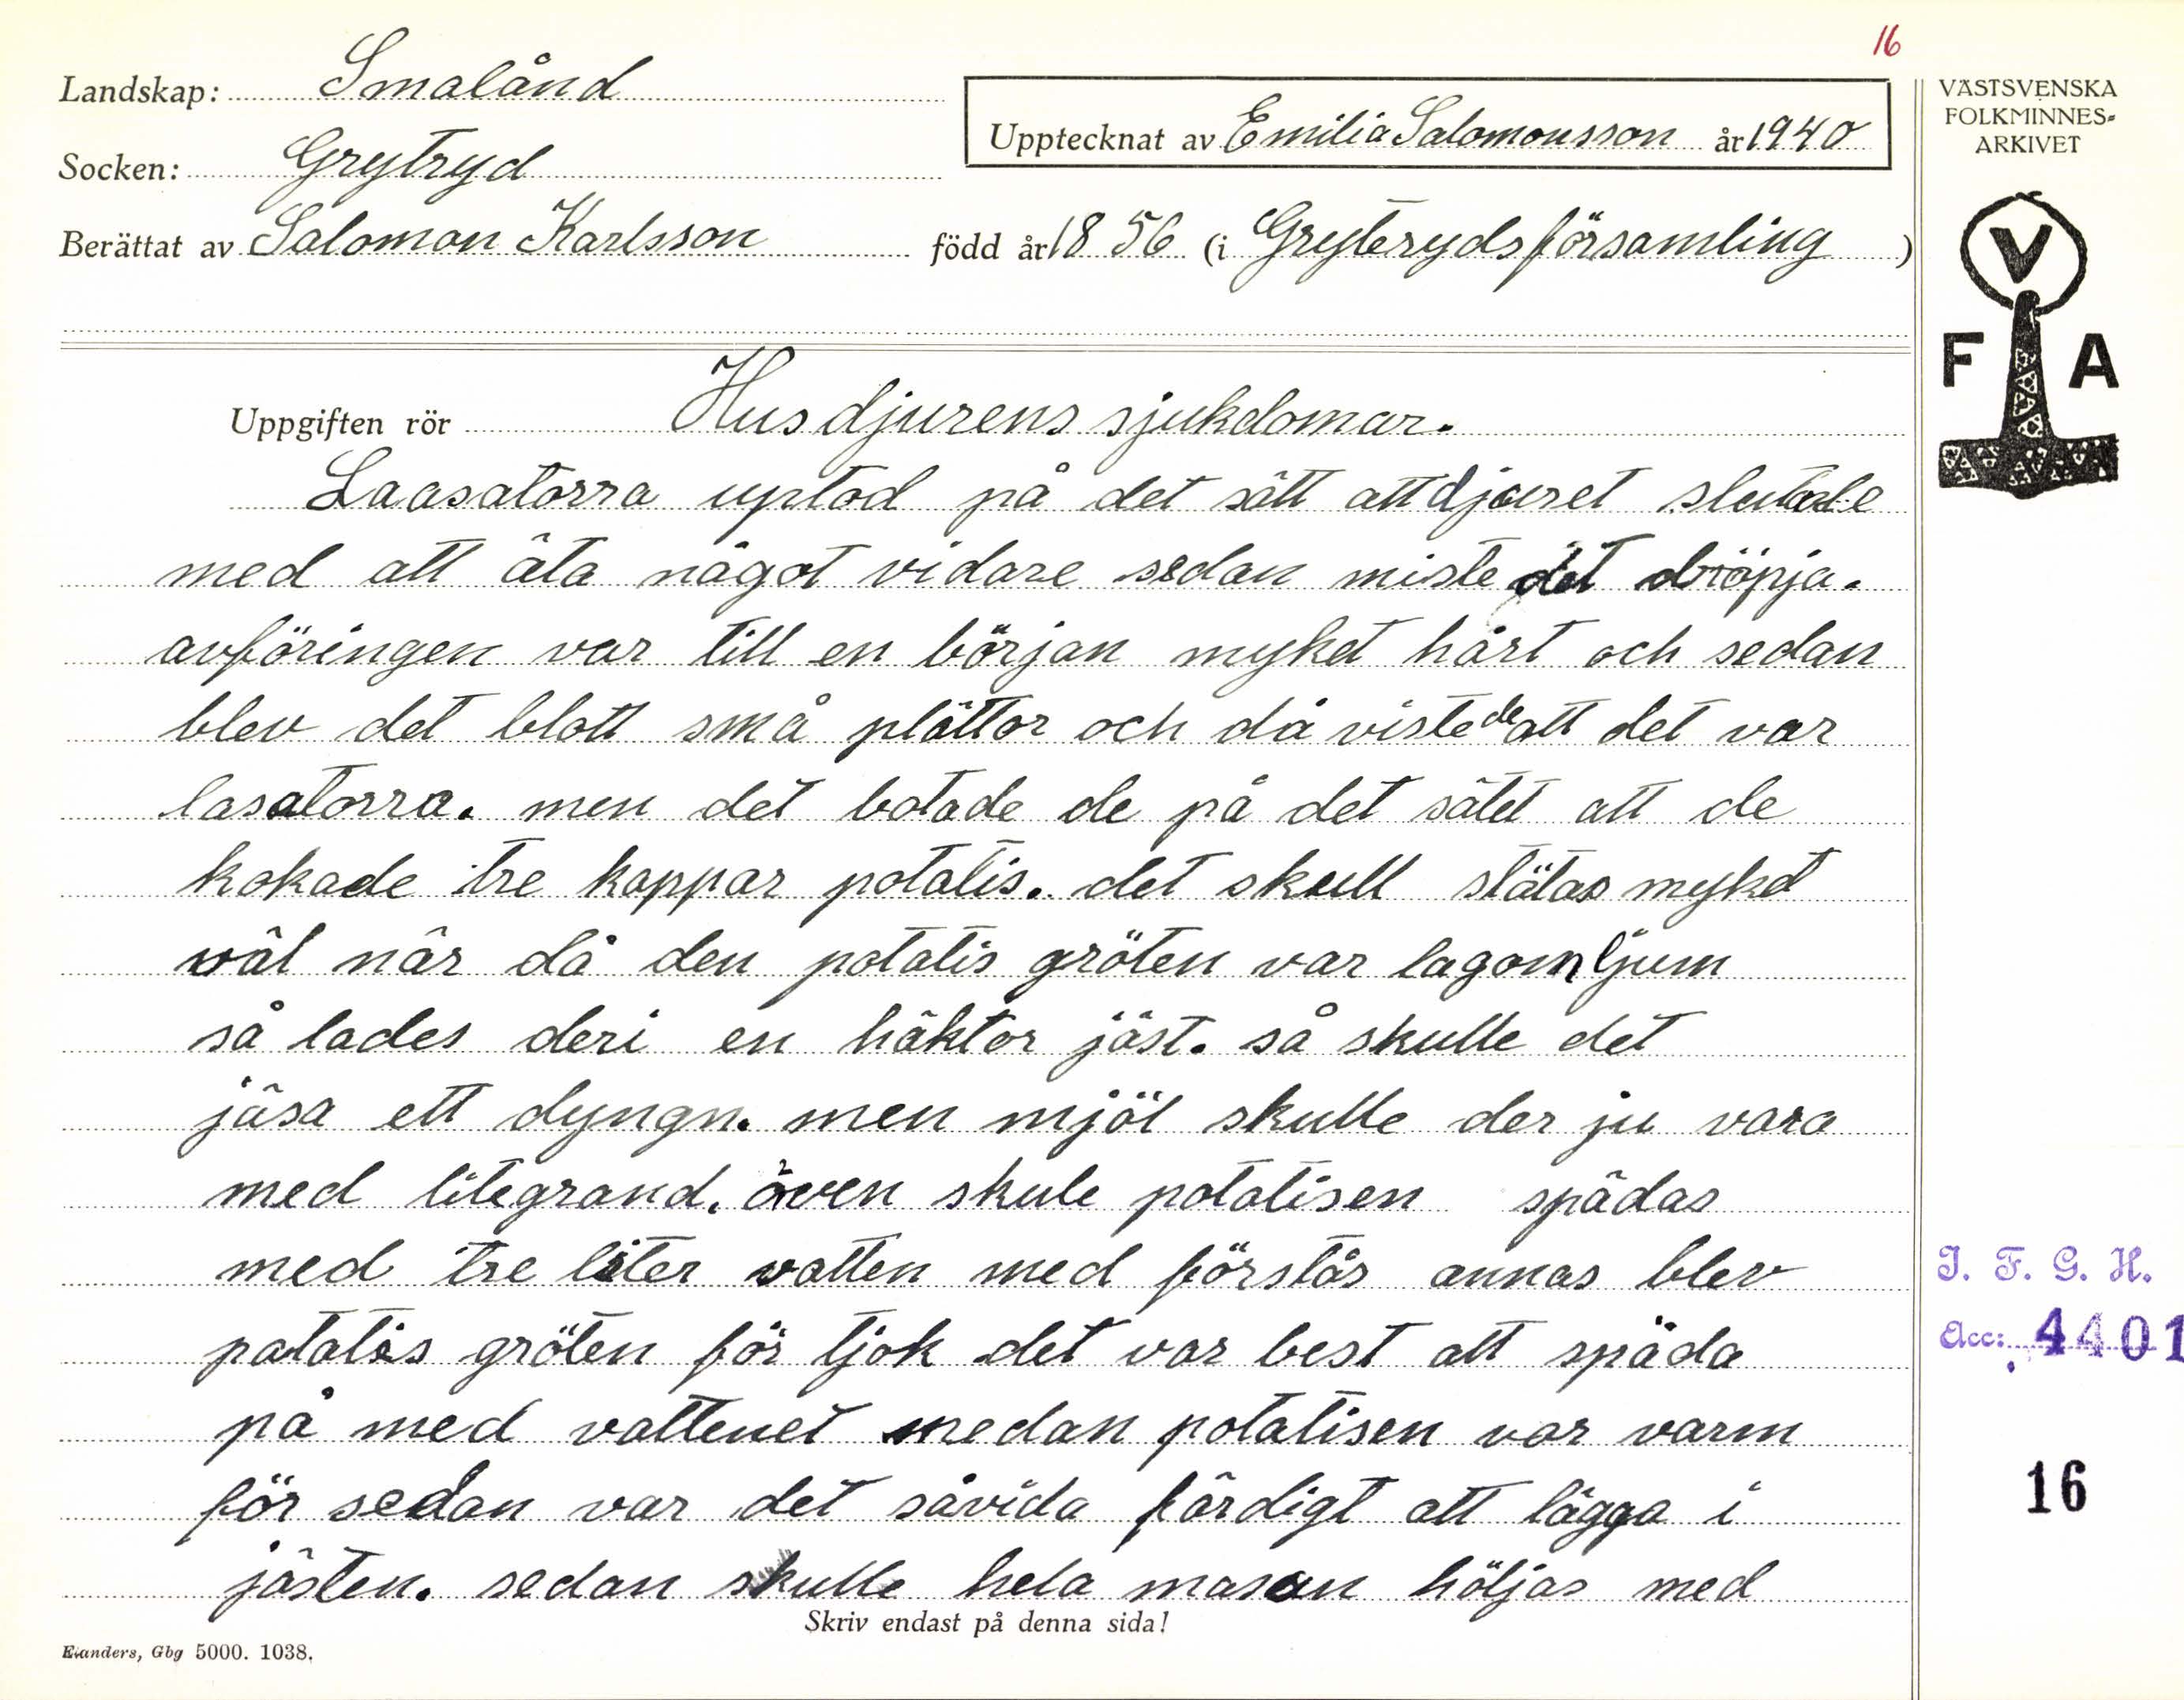 16
Landskap: Smalånd
Socken: Grytryd
Upptecknat av Emilia Salomonsson år 1940
Berättat av Salomon Karlsson född år 1856 (i Gryteryds församling)
VÄSTSVENSKA
FOLKMINNES-
ARKIVET
V
F A
Uppgiften rör Husdjurens sjukdomar.
Laasatorra uptod på det sätt att djuret slutade
med att äta något vidare sedan miste det dröpja.
avföringen var till en början myket hårt och sedan
blev det blott små plättor och då viste de att det var
lasatorra. men det botade de på det sätet att de
kokade tre kappar potatis. det skull stätas myket
wäl när då den potatis gröten var lagom ljum
så lades deri en häktor jäst. så skulle det
jäsa ett dyngn. men mjöl skulle der ju vara
med litegrand. även skule potatisen spädas
med tre liter vatten med förstås annas blev
patatis gröten för tjok det var best att späda
på med vattenet medan potatisen var varm
för sedan var det såvida färdigt att lägga i
jästen. sedan skulle hela masan höljas med
Skriv endast på denna sida!
Elanders, Gbg 5000. 1038.
I. F. G. H.
Acc: 4401
16